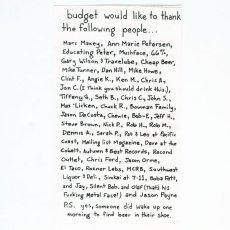 budget would like to thank
the following people...
Marc Maxey, Ann Marie Petersen,
Educating Peter, Mushface, 66th,
Gary Wilson & Travelube, Cheap Beer,
Mike Turner, Dan Hill, Mike Howe,
Clint F., Angie K., Ken M., Chris A.,
Jon C. (I think you should drink this),
Tiffany G., Seth B., Chris C., John S.,
Mas 'Licken, Chuck R., Bowman Family,
Jason DeCosta, Chewie, Bob-E, Jeff H.,
Steve Brown, Nick P., Rob H., Rob M.,
Dennis A., Sarah P., Pat & Leo at Pacific
Coast, Mailing List Magazine, Dave at the
Cobalt, Autumn @ Best Records, Record
Outlet, Chris Ford, Jason Orme,
El Taco, Rozner Labs, MCRB, Southwest
Liquor & Deli, Sinkai at 7-11, Boba Fett,
and Jay, Silent Bob, and Olaf (That's his
Fucking Metal Face!) and Jason Payne
P.S. yes, someone did wake up one
morning to find beer in their shoe.